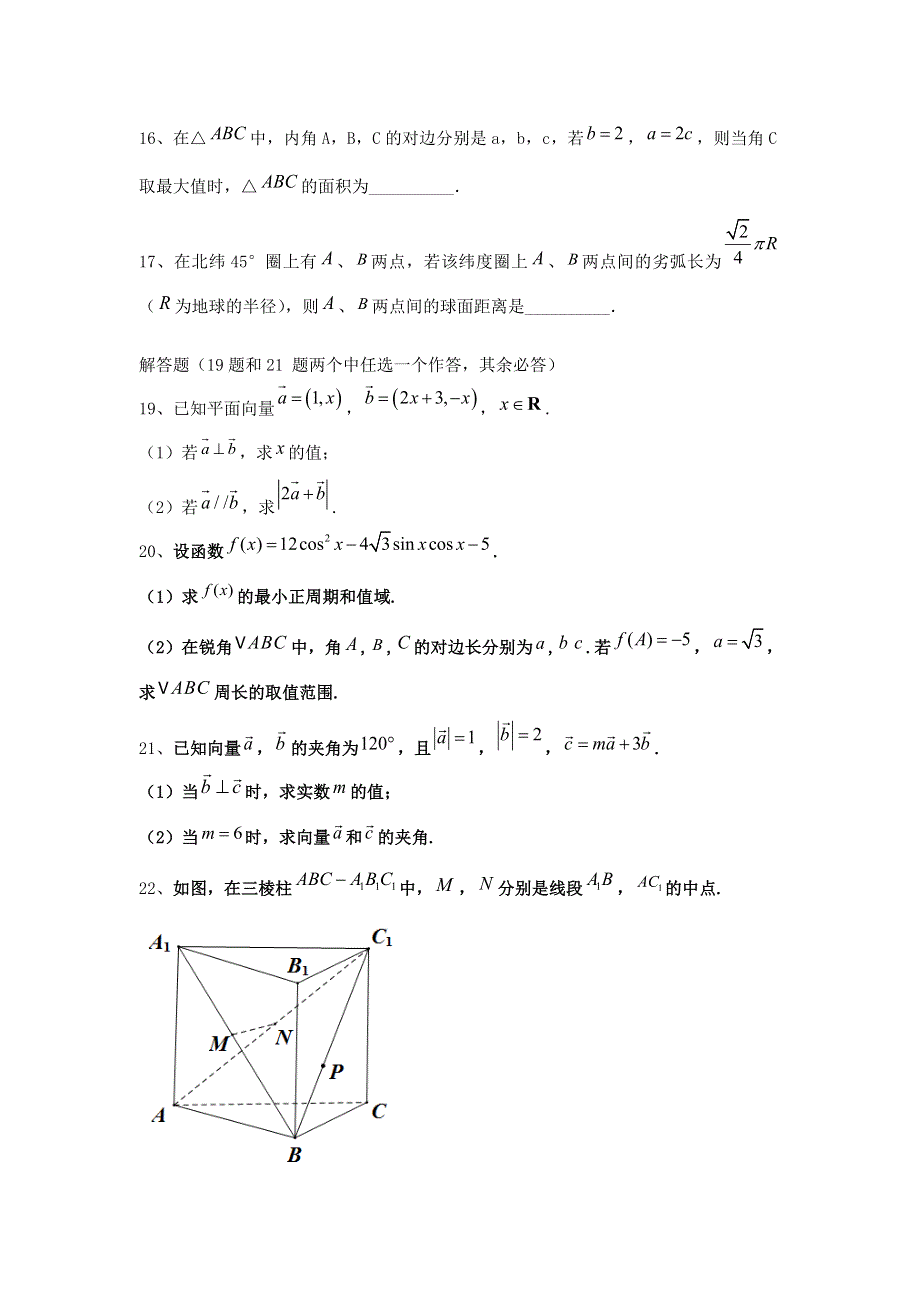 16、在△ABC中，内角A，B，C的对边分别是a，b，c，若b=2，a=2c，则当角C
取最大值时，△ABC的面积为__________．
17、在北纬45°圈上有A、B两点，若该纬度圈上A、B两点间的劣弧长为√2/4 πR
（R为地球的半径），则A、B两点间的球面距离是__________．
解答题（19题和21 题两个中任选一个作答，其余必答）
19、已知平面向量a⃗=(1,x)，b⃗=(2x+3,−x)，x∈R．
（1）若a⃗⊥b⃗，求x的值；
（2）若a⃗//b⃗，求|2a⃗+b⃗|．
20、设函数f(x)=12cos²x−4√3sinxcosx−5．
（1）求f(x)的最小正周期和值域.
（2）在锐角VABC中，角A，B，C的对边长分别为a，b c．若f(A)=−5，a=√3，
求VABC周长的取值范围.
21、已知向量a⃗，b⃗的夹角为120°，且|a⃗|=1，|b⃗|=2，c⃗=ma⃗+3b⃗．
（1）当b⃗⊥c⃗时，求实数m的值；
（2）当m=6时，求向量a⃗和c⃗的夹角.
22、如图，在三棱柱ABC−A₁B₁C₁中，M，N分别是线段A₁B，AC₁的中点.
A₁
C₁
B₁
M
N
P
A
C
B